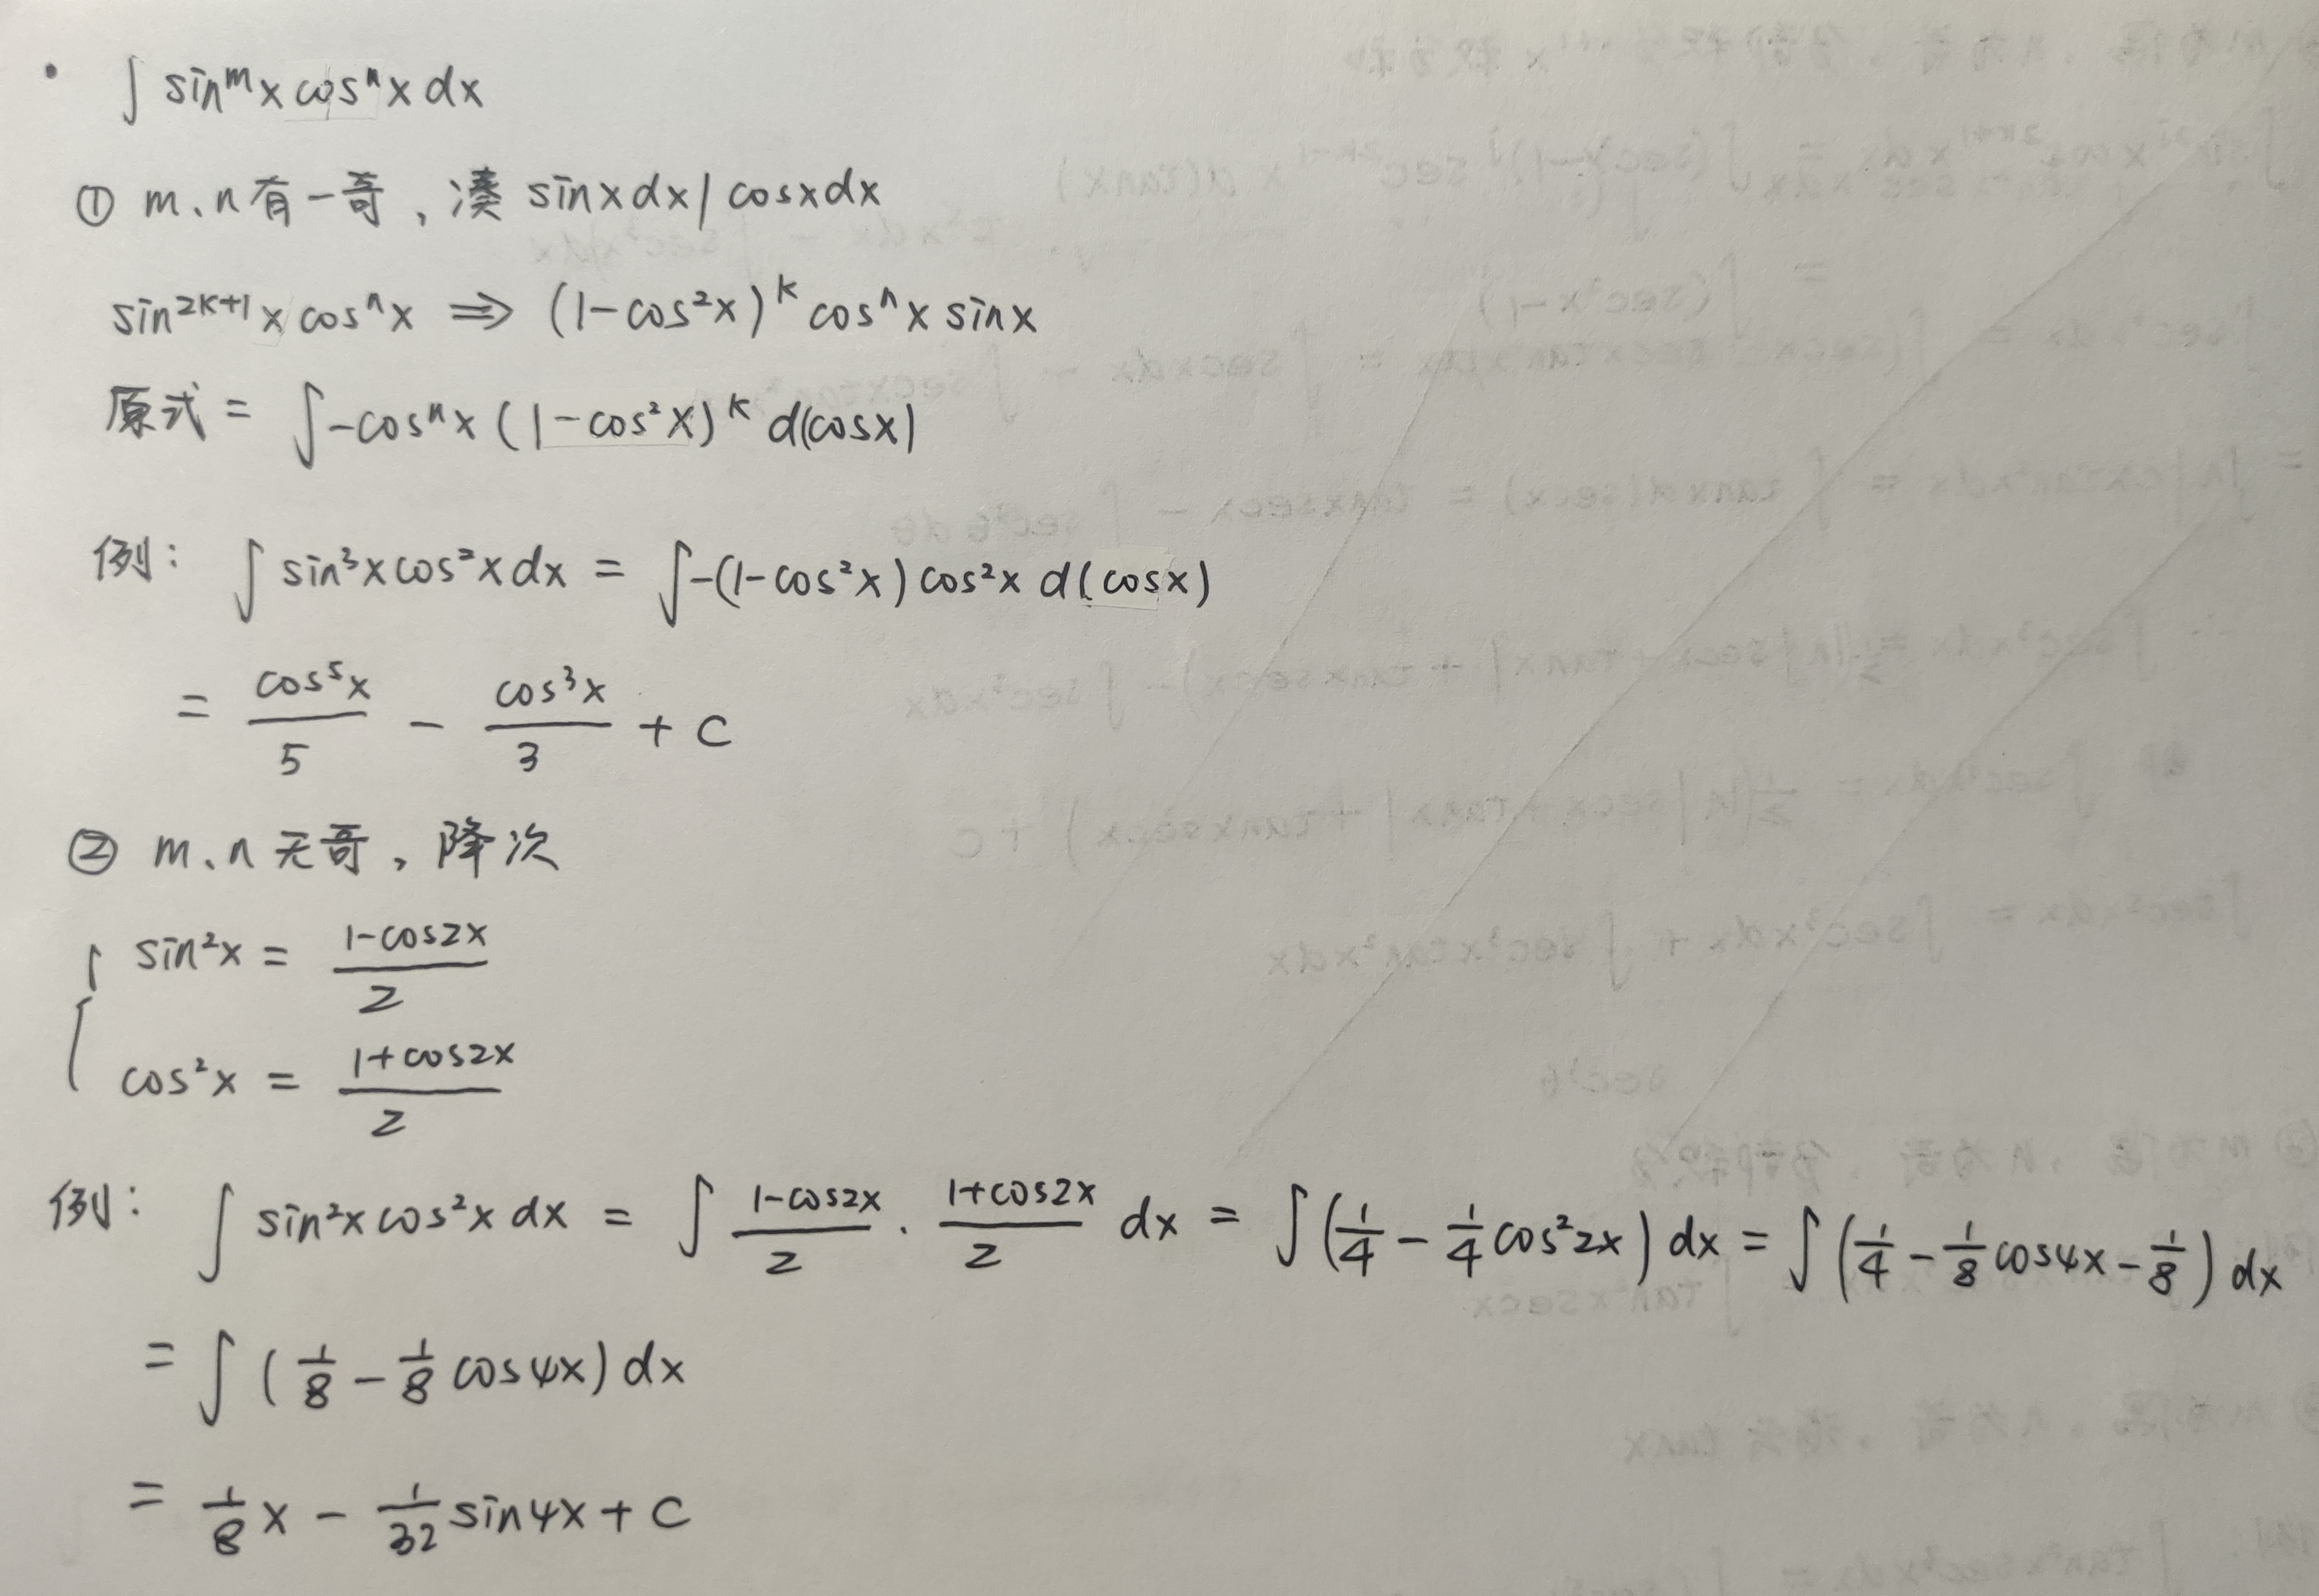 · ∫ sin^m x cos^n x dx
① m、n有一奇，凑 sinxdx / cosxdx
sin^{2k+1} x cos^n x ⇒ (1-cos²x)^k cos^n x sinx
原式 = ∫-cos^n x (1-cos²x)^k d(cosx)
例： ∫ sin³x cos²x dx = ∫-(1-cos²x) cos²x d(cosx)
= \frac{cos⁵x}{5} - \frac{cos³x}{3} + C
② m、n无奇，降次
{ sin²x = \frac{1-cos2x}{2}
cos²x = \frac{1+cos2x}{2}
例： ∫ sin²x cos²x dx = ∫ \frac{1-cos2x}{2} · \frac{1+cos2x}{2} dx = ∫ (\frac{1}{4} - \frac{1}{4} cos²2x) dx = ∫ (\frac{1}{4} - \frac{1}{8} cos4x - \frac{1}{8}) dx
= ∫ (\frac{1}{8} - \frac{1}{8} cos4x) dx
= \frac{1}{8} x - \frac{1}{32} sin4x + C